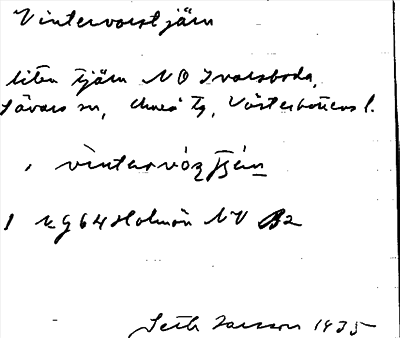 Vintervorstjärn
liten tjärn NO Ivarsboda,
Sävars sn, Umeå tg, Västerbottens l.
vìntərvóʂʈjɛ́ɳ
1 kg 64 Holmön NV B2
Seth Larsson 1935